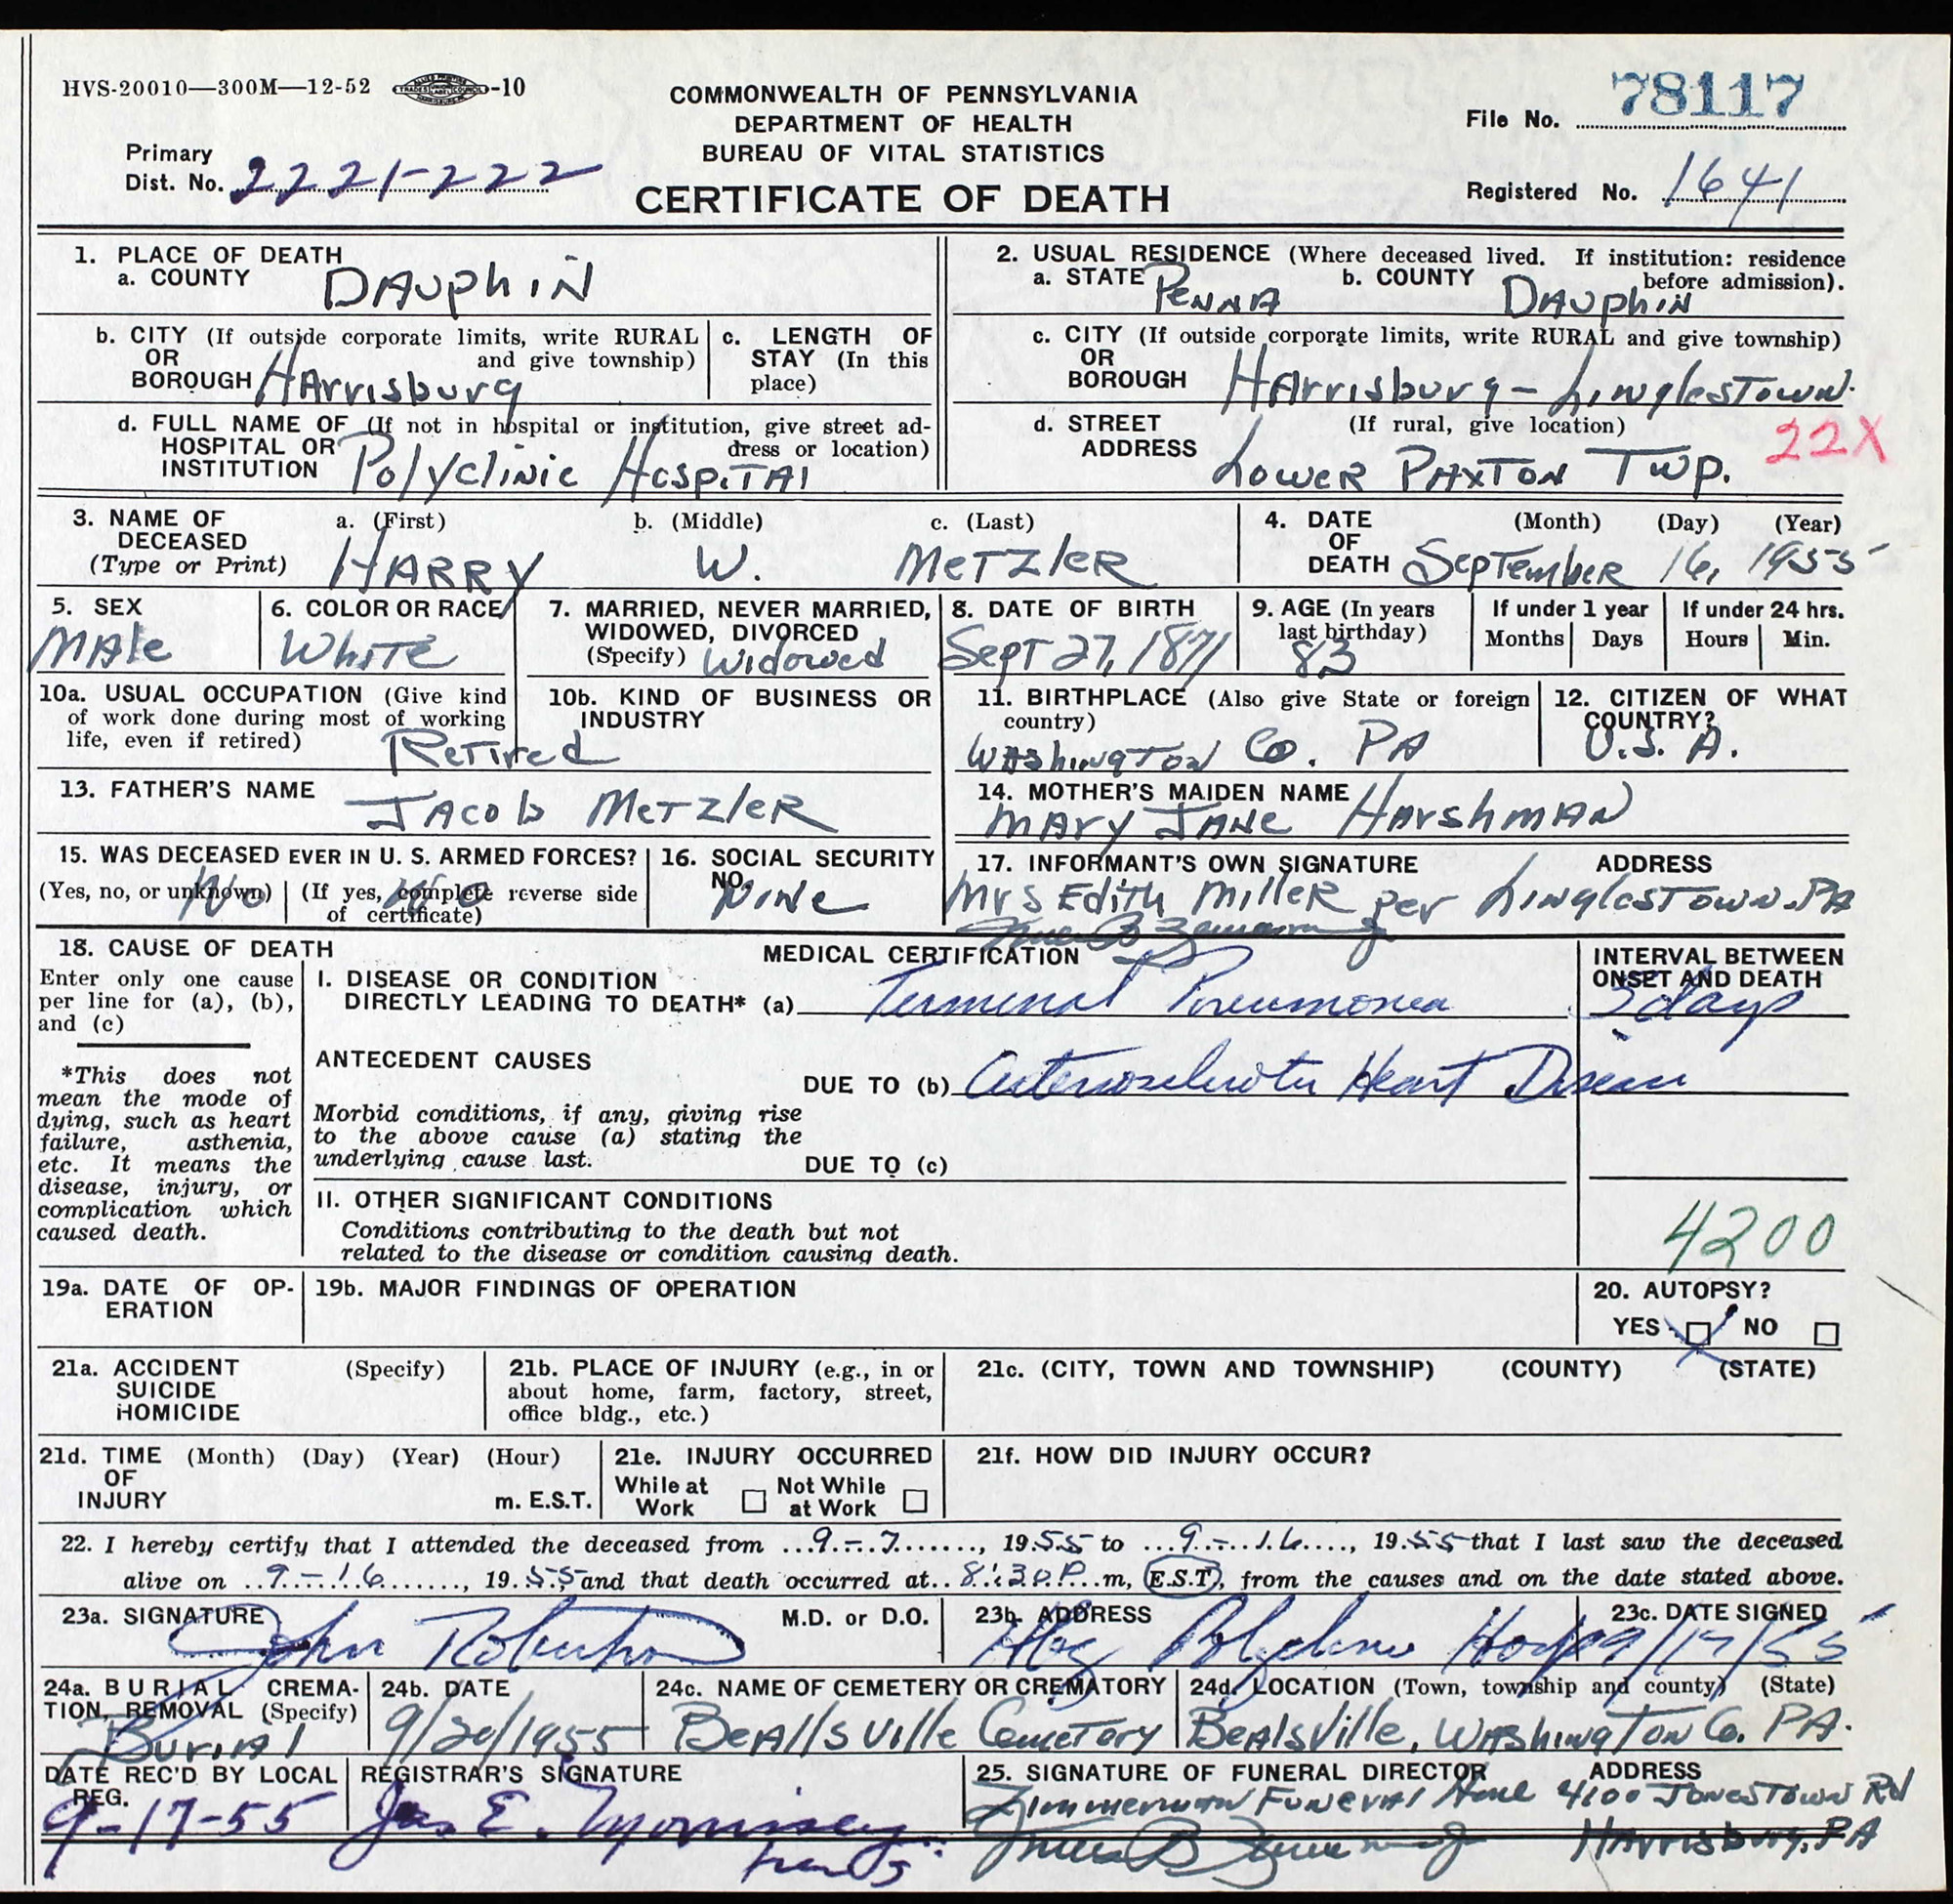 HVS-20010—300M—12-52 -10
COMMONWEALTH OF PENNSYLVANIA
DEPARTMENT OF HEALTH
BUREAU OF VITAL STATISTICS
CERTIFICATE OF DEATH
File No. 78117
Primary
Dist. No. 2221-222
Registered No. 1641
1. PLACE OF DEATH
a. COUNTY DAuphiN
2. USUAL RESIDENCE (Where deceased lived. If institution: residence
before admission).
a. STATE PeNNA b. COUNTY DAuphiN
b. CITY (If outside corporate limits, write RURAL
OR and give township)
BOROUGH HArrisburg
c. LENGTH OF
STAY (In this
place)
c. CITY (If outside corporate limits, write RURAL and give township)
OR
BOROUGH HArrisburg - LinglesTown
d. FULL NAME OF (If not in hospital or institution, give street ad-
HOSPITAL OR dress or location)
INSTITUTION Polyclinic HospiTAl
d. STREET (If rural, give location)
ADDRESS Lower PAxTon Twp. 22X
3. NAME OF
DECEASED
(Type or Print)
a. (First) b. (Middle) c. (Last)
HARRY W. MeTZleR
4. DATE
OF
DEATH
(Month) (Day) (Year)
SepTember 16, 1955
5. SEX
MAle
6. COLOR OR RACE
WhiTe
7. MARRIED, NEVER MARRIED,
WIDOWED, DIVORCED
(Specify) Widowed
8. DATE OF BIRTH
Sept 27, 1871
9. AGE (In years
last birthday)
83
If under 1 year
Months Days
If under 24 hrs.
Hours Min.
10a. USUAL OCCUPATION (Give kind
of work done during most of working
life, even if retired)
ReTired
10b. KIND OF BUSINESS OR
INDUSTRY
11. BIRTHPLACE (Also give State or foreign
country)
WAshingTon Co. PA
12. CITIZEN OF WHAT
COUNTRY?
U.S.A.
13. FATHER'S NAME JAcob MeTZleR
14. MOTHER'S MAIDEN NAME
MAry JANe HArshmAN
15. WAS DECEASED EVER IN U. S. ARMED FORCES?
(Yes, no, or unknown) (If yes, complete reverse side
of certificate)
No No
16. SOCIAL SECURITY
NO.
NoNe
17. INFORMANT'S OWN SIGNATURE ADDRESS
Mrs Edith Miller per LinglesTown, PA
18. CAUSE OF DEATH
Enter only one cause
per line for (a), (b),
and (c)
*This does not
mean the mode of
dying, such as heart
failure, asthenia,
etc. It means the
disease, injury, or
complication which
caused death.
MEDICAL CERTIFICATION
I. DISEASE OR CONDITION
DIRECTLY LEADING TO DEATH* (a) Terminal Pneumonea
INTERVAL BETWEEN
ONSET AND DEATH
days
ANTECEDENT CAUSES
DUE TO (b) Arteriosclerotic Heart Disease
Morbid conditions, if any, giving rise
to the above cause (a) stating the
underlying cause last.
DUE TO (c)
II. OTHER SIGNIFICANT CONDITIONS
Conditions contributing to the death but not
related to the disease or condition causing death.
4200
19a. DATE OF OP-
ERATION
19b. MAJOR FINDINGS OF OPERATION
20. AUTOPSY?
YES NO
21a. ACCIDENT (Specify)
SUICIDE
HOMICIDE
21b. PLACE OF INJURY (e.g., in or
about home, farm, factory, street,
office bldg., etc.)
21c. (CITY, TOWN AND TOWNSHIP) (COUNTY) (STATE)
21d. TIME (Month) (Day) (Year) (Hour)
OF
INJURY m. E.S.T.
21e. INJURY OCCURRED
While at Not While
Work at Work
21f. HOW DID INJURY OCCUR?
22. I hereby certify that I attended the deceased from 9-7, 1955 to 9-16, 1955 that I last saw the deceased
alive on 9-16, 1955 and that death occurred at 8:30 P.m, E.S.T, from the causes and on the date stated above.
23a. SIGNATURE M.D. or D.O.
John Robertson
23b. ADDRESS
Hbg Polyclinic Hosp
23c. DATE SIGNED
9/17/55
24a. BURIAL, CREMA-
TION, REMOVAL (Specify)
BuriAl
24b. DATE
9/20/1955
24c. NAME OF CEMETERY OR CREMATORY
BeAllsville CemeTery
24d. LOCATION (Town, township and county) (State)
BeAlsville, WAshingTon Co. PA.
DATE REC'D BY LOCAL
REG.
9-17-55
REGISTRAR'S SIGNATURE
Jas E. Morrissey
25. SIGNATURE OF FUNERAL DIRECTOR ADDRESS
Zimmerman FuNerAl Home 4100 JonesTown Rd
HArrisburg, PA